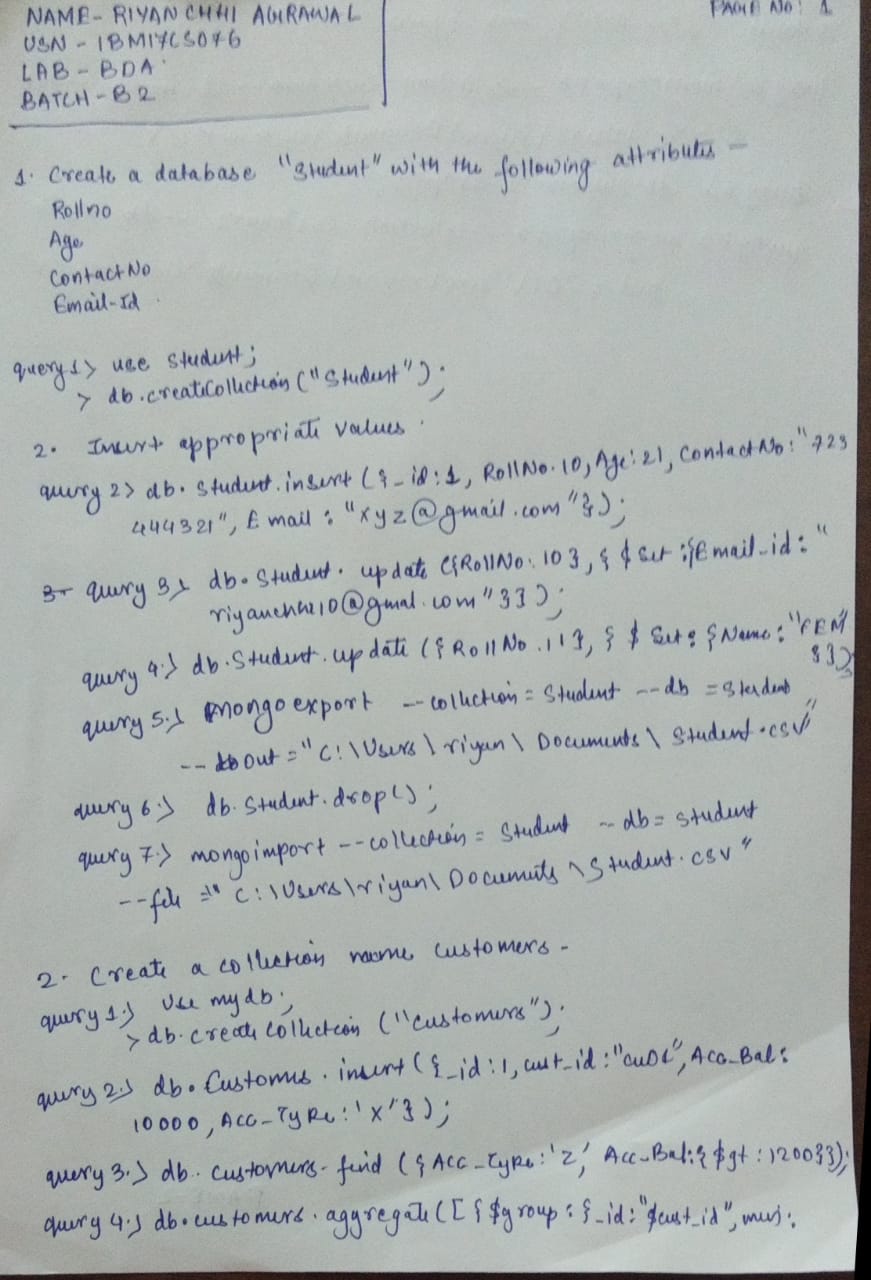 NAME- RIYANCHHI AGRAWAL
USN - 1BM17CS076
LAB - BDA
BATCH - B2
PAGE NO: 1
1. Create a database "Student" with the following attributes -
Rollno
Age
ContactNo
Email-Id
query 1> use student;
> db.createCollection("Student");
2. Insert appropriate values.
query 2> db.student.insert({_id:1, RollNo.10, Age:21, ContactNo:"723
444321", Email: "xyz@gmail.com"});
3- query 3.> db.Student.update({RollNo:10}, {$set:{Email_id:"
riyanchhi10@gmail.com"}});
query 4.> db.Student.update({RollNo.11}, {$set:{Name:"FEM"
}})
query 5.> mongoexport --collection=Student --db=Student
-- out="C:\Users\riyan\Documents\Student.csv"
query 6.> db.Student.drop();
query 7.> mongoimport --collection=Student --db=student
--file="C:\Users\riyan\Documents\Student.csv"
2- Create a collection name customers-
query 1.> Use mydb;
> db.createCollection("customers");
query 2.> db.Customers.insert({_id:1, cust_id:"cu01", Acc_Bal:
10000, Acc-Type:'X'});
query 3.> db.customers.find({Acc_Type:'Z', Acc_Bal:{$gt:1200}});
query 4.> db.customers.aggregate([{$group:{_id:"$cust_id",